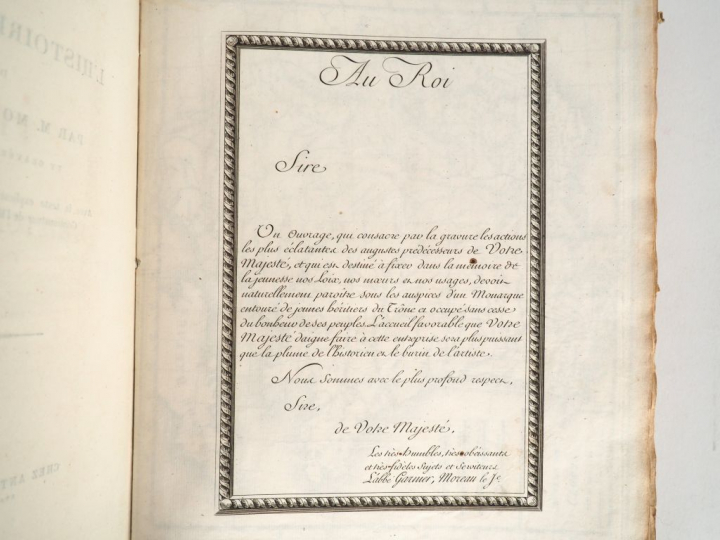 Au Roi
Sire
Un Ouvrage, qui consacre par la gravure les actions
les plus éclatantes des augustes prédécesseurs de Votre
Majesté, et qui est destiné à fixer dans la mémoire de
la jeunesse nos Loix, nos mœurs et nos usages, devoit
naturellement paroitre sous les auspices d'un Monarque
entouré de jeunes héritiers du Trône et occupé sans cesse
du bonheur de ses peuples. L'accueil favorable que Votre
Majesté daigne faire à cette entreprise sera plus puissant
que la plume de l'historien et le burin de l'artiste.
Nous Sommes avec le plus profond respect,
Sire,
de Votre Majesté,
Les très-humbles, très-obéissants
et très-fidèles Sujets et Serviteurs
L'abbé Garnier, Moreau le Je.